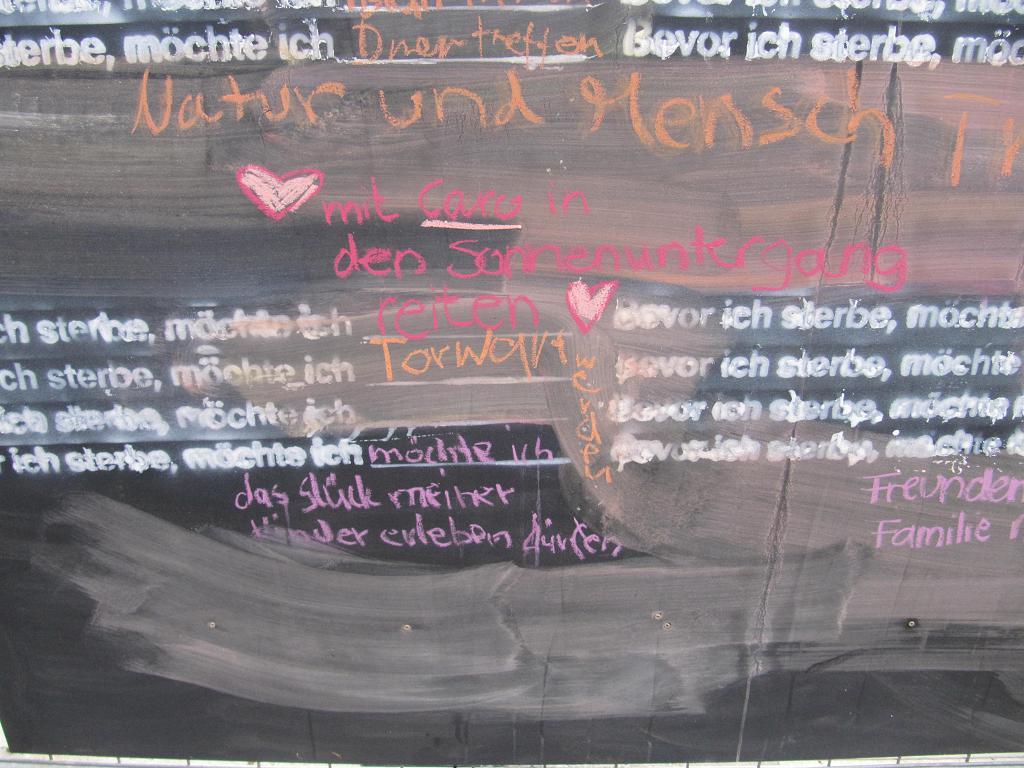 sterbe, möchte ich treffen Bevor ich sterbe,
Natur und Mensch
mit Caro in
den Sonnenuntergang
reiten
ch sterbe, möchte ich Bevor ich sterbe, möchte
Torwart werden
ch sterbe, möchte ich Bevor ich sterbe, möchte
ich sterbe, möchte ich Bevor ich sterbe, möchte
ich sterbe, möchte ich möchte ich Bevor ich sterbe, möchte
das Glück meiner Freunden
Kinder erleben dürfen Familie